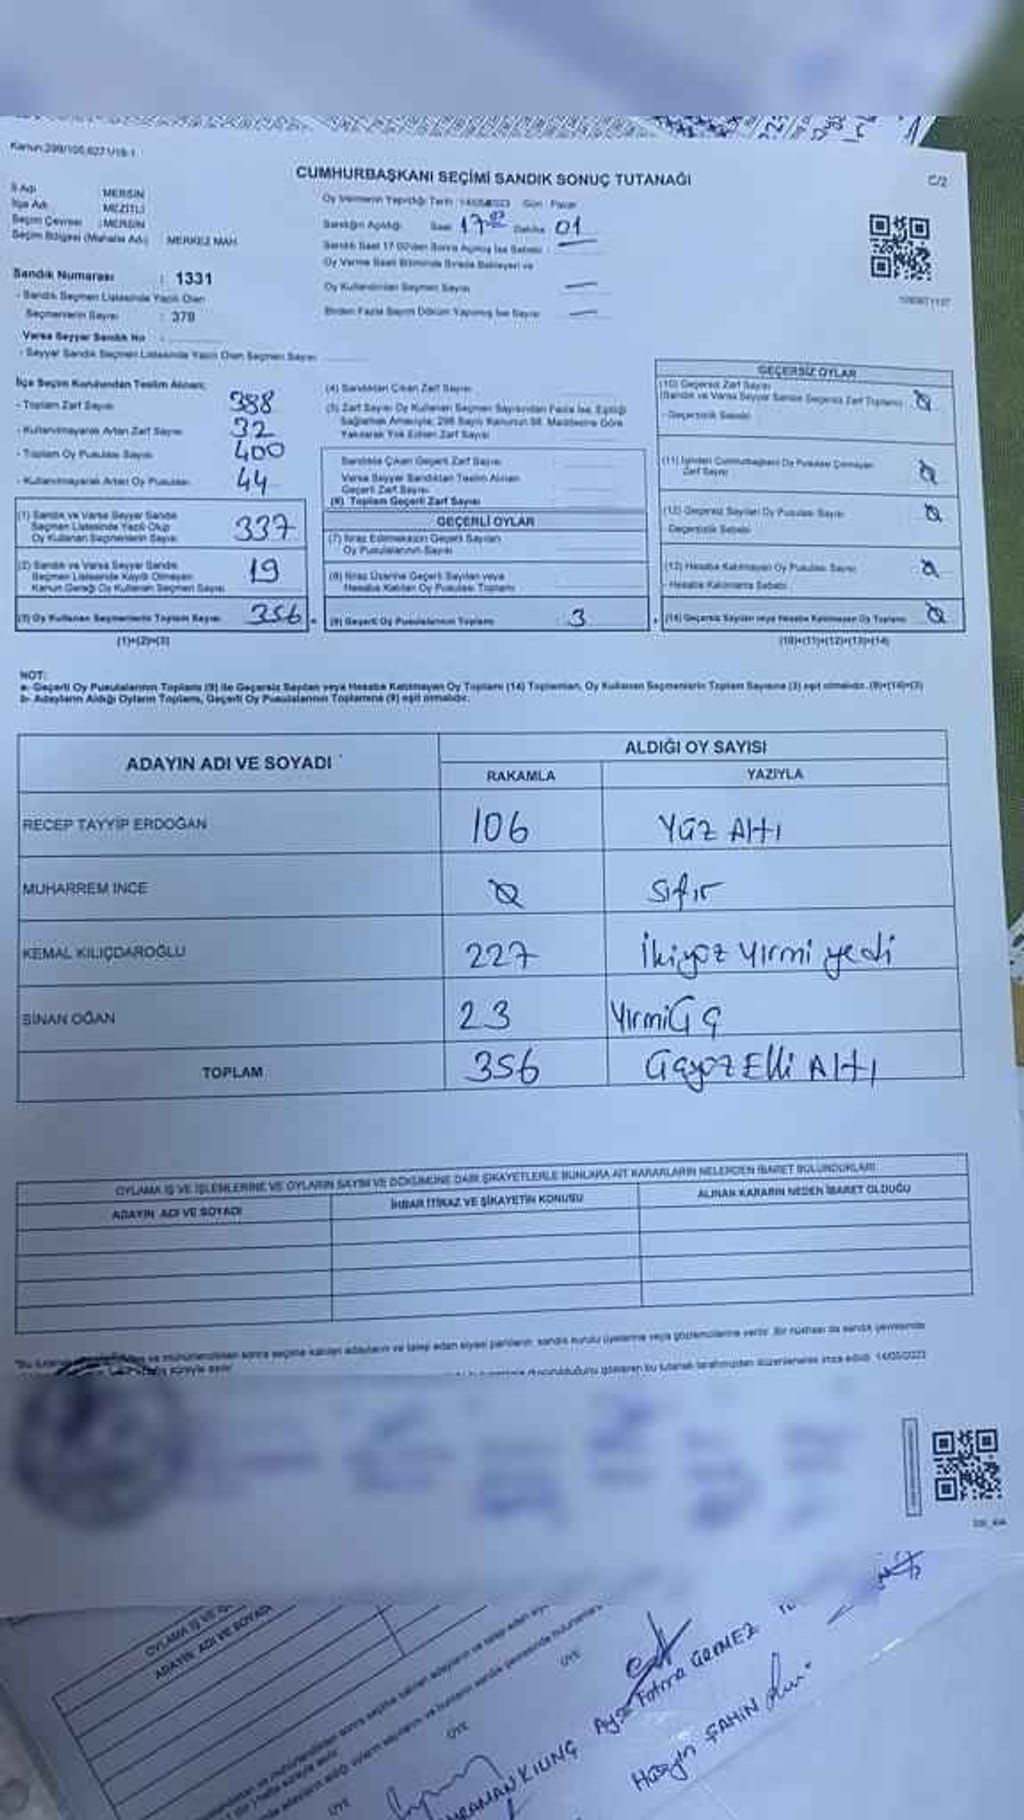 Kanun:298/105,6271/19-1
CUMHURBAŞKANI SEÇİMİ SANDIK SONUÇ TUTANAĞI
C/2
İl Adı MERSİN
İlçe Adı : MEZİTLİ
Seçim Çevresi : MERSİN
Seçim Bölgesi (Mahalle Adı) MERKEZ MAH.
Oy Vermenin Yapıldığı Tarih : 14/05/2023 Gün : Pazar
Sandığın Açıldığı Saat 17 Dakika 01
Sandık Saat 17.00'den Sonra Açılmış İse Sebebi :
Oy Verme Saati Bitiminde Sırada Bekleyen ve
Oy Kullandırılan Seçmen Sayısı
Birden Fazla Sayım Döküm Yapılmış İse Sayısı
Sandık Numarası : 1331
- Sandık Seçmen Listesinde Yazılı Olan
Seçmenlerin Sayısı : 378
Varsa Seyyar Sandık No :
- Seyyar Sandık Seçmen Listesinde Yazılı Olan Seçmen Sayısı
İlçe Seçim Kurulundan Teslim Alınan;
- Toplam Zarf Sayısı 388
- Kullanılmayarak Artan Zarf Sayısı 32
- Toplam Oy Pusulası Sayısı 400
- Kullanılmayarak Artan Oy Pusulası 44
(1) Sandık ve Varsa Seyyar Sandık
Seçmen Listesinde Yazılı Olup
Oy Kullanan Seçmenlerin Sayısı 337
(2) Sandık ve Varsa Seyyar Sandık
Seçmen Listesinde Kayıtlı Olmayan
Kanun Gereği Oy Kullanan Seçmen Sayısı 19
(3) Oy Kullanan Seçmenlerin Toplam Sayısı 356
(1)+(2)=(3)
(4) Sandıktan Çıkan Zarf Sayısı
(5) Zarf Sayısı Oy Kullanan Seçmen Sayısından Fazla İse, Eşitliği
Sağlamak Amacıyla, 298 Sayılı Kanunun 98. Maddesine Göre
Yakılarak Yok Edilen Zarf Sayısı
Sandıkta Çıkan Geçerli Zarf Sayısı
Varsa Seyyar Sandıktan Teslim Alınan
Geçerli Zarf Sayısı
(6) Toplam Geçerli Zarf Sayısı
GEÇERLİ OYLAR
(7) İtiraz Edilmeksizin Geçerli Sayılan
Oy Pusulalarının Sayısı
(8) İtiraz Üzerine Geçerli Sayılan veya
Hesaba Katılan Oy Pusulası Toplamı
(9) Geçerli Oy Pusulalarının Toplamı 3
GEÇERSİZ OYLAR
(10) Geçersiz Zarf Sayısı
(Sandık ve Varsa Seyyar Sandık Geçersiz Zarf Toplamı)
- Geçersizlik Sebebi
(11) İçinden Cumhurbaşkanı Oy Pusulası Çıkmayan
Zarf Sayısı
(12) Geçersiz Sayılan Oy Pusulası Sayısı
- Geçersizlik Sebebi
(13) Hesaba Katılmayan Oy Pusulası Sayısı
- Hesaba Katılmama Sebebi
(14) Geçersiz Sayılan veya Hesaba Katılmayan Oy Toplamı
(10)+(11)+(12)+(13)=(14)
NOT:
a- Geçerli Oy Pusulalarının Toplamı (9) ile Geçersiz Sayılan veya Hesaba Katılmayan Oy Toplamı (14) Toplamları, Oy Kullanan Seçmenlerin Toplam Sayısına (3) eşit olmalıdır. (9)+(14)=(3)
b- Adayların Aldığı Oyların Toplamı, Geçerli Oy Pusulalarının Toplamına (9) eşit olmalıdır.
ADAYIN ADI VE SOYADI
ALDIĞI OY SAYISI
RAKAMLA YAZIYLA
RECEP TAYYİP ERDOĞAN 106 Yüz Altı
MUHARREM İNCE Sıfır
KEMAL KILIÇDAROĞLU 227 İkiyüz Yirmi yedi
SİNAN OĞAN 23 Yirmi Üç
TOPLAM 356 Üçyüz Elli Altı
OYLAMA İŞ VE İŞLEMLERİNE VE OYLARIN SAYIM VE DÖKÜMÜNE DAİR ŞİKAYETLERLE BUNLARA AİT KARARLARIN NELERDEN İBARET BULUNDUKLARI
ADAYIN ADI VE SOYADI
İHBAR İTİRAZ VE ŞİKAYETİN KONUSU
ALINAN KARARIN NEDEN İBARET OLDUĞU
ve mühürlendikten sonra seçime katılan adayların ve talep eden siyasi partilerin sandık kurulu üyelerine veya gözlemcilerine verilir. Bir nüshası da sandık çevresinde
süreyle asılır.
gösteren bu tutanak tarafımızdan düzenlenerek imza edildi. 14/05/2023
OYLAMA İŞ VE
ADAYIN ADI VE SOYADI
ÜYE
ÜYE
ÜYE
KILINÇ
Ayşe Fatma GEZMEZ
ŞAHİN